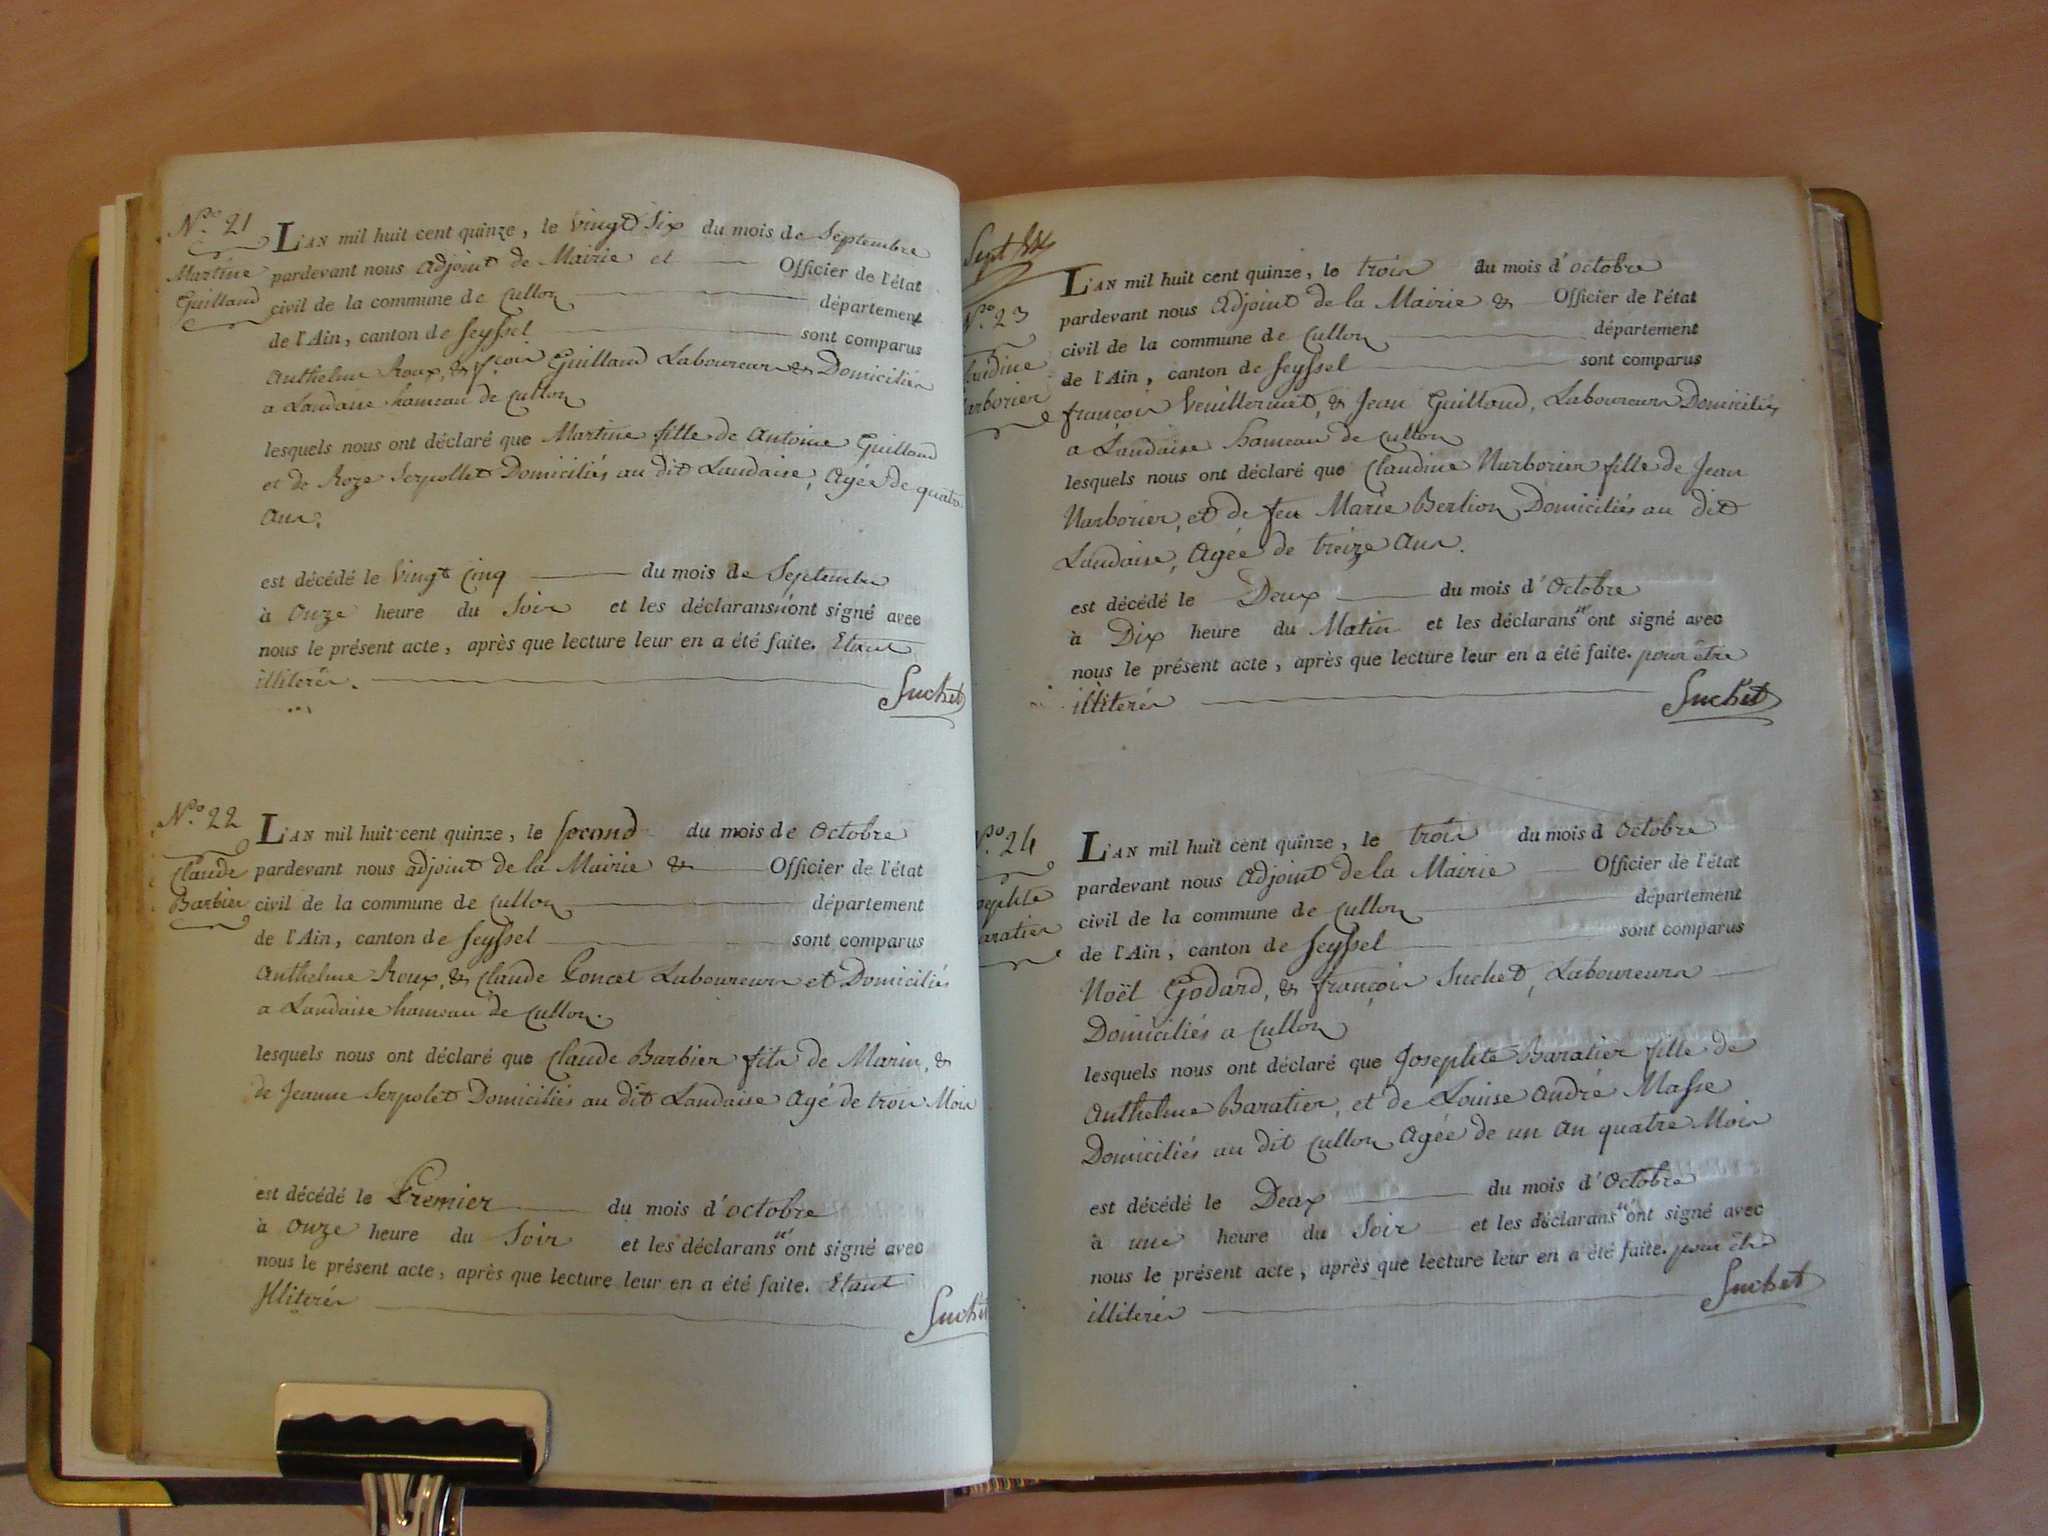 N.o 21
Martine
Guilland
L'AN mil huit cent quinze, le Vingt Six du mois de Septembre
pardevant nous adjoint de Mairie et Officier de l'état
civil de la commune de Cullon département
de l'Ain, canton de Seyssel sont comparus
Anthelme Roux, & f.çois Guilland Laboureurs & Domiciliés
a Landaise hameau de Cullon
lesquels nous ont déclaré que Martine fille de Antoine Guilland
et de Roze Serpollet Domiciliés au dit Landaise, Agée de quatre
ans.
est décédé le Vingt Cinq du mois de Septembre
à Onze heure du Soir et les déclarans n'ont signé avec
nous le présent acte, après que lecture leur en a été faite. Etant
illiterés.
Suchet
N.o 22
Claude
Barbier
L'AN mil huit cent quinze, le second du mois de Octobre
pardevant nous adjoint de la Mairie & Officier de l'état
civil de la commune de Cullon département
de l'Ain, canton de Seyssel sont comparus
Anthelme Roux, & Claude Poncet Laboureurs et Domiciliés
a Landaise hameau de Cullon.
lesquels nous ont déclaré que Claude Barbier fils de Marin, &
de Jeanne Serpolet Domiciliés au dit Landaise Agé de trois Mois
est décédé le Premier du mois d'octobre
à Onze heure du Soir et les déclarans n'ont signé avec
nous le présent acte, après que lecture leur en a été faite. Etant
Illiterés
Suchet
N.o 23
L'AN mil huit cent quinze, le trois du mois d'octobre
pardevant nous Adjoint de la Mairie & Officier de l'état
civil de la commune de Cullon département
de l'Ain, canton de Seyssel sont comparus
françois Veuillermet, & Jean Guilland, Laboureurs Domiciliés
a Landaise hameau de Cullon
lesquels nous ont déclaré que Claudine Narborier fille de Jean
Narborier, et de feu Marie Berlion Domiciliés au dit
Landaise, Agée de treize Ans.
est décédé le Deux du mois d'Octobre
à Dix heure du Matin et les déclarans n'ont signé avec
nous le présent acte, après que lecture leur en a été faite. pour être
illiterés
Suchet
N.o 24
L'AN mil huit cent quinze, le trois du mois d Octobre
pardevant nous Adjoint de la Mairie Officier de l'état
civil de la commune de Cullon département
de l'Ain, canton de Seyssel sont comparus
Noël Godard, & françois Suchet, Laboureurs
Domiciliés a Cullon
lesquels nous ont déclaré que Josephte Baratier fille de
Anthelme Baratier, et de Louise André Masse
Domiciliés au dit Cullon Agée de un An quatre Mois
est décédé le Deux du mois d'Octobre
à une heure du Soir et les déclarans n'ont signé avec
nous le présent acte, après que lecture leur en a été faite. pour être
illiterés
Suchet